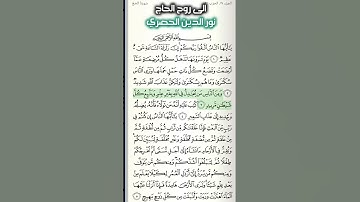 الى روح الحاج
نور الدين الحصري
بِسْمِ اللَّهِ الرَّحْمَٰنِ الرَّحِيمِ
يَا أَيُّهَا النَّاسُ اتَّقُوا رَبَّكُمْ إِنَّ زَلْزَلَةَ السَّاعَةِ شَيْءٌ
عَظِيمٌ ١ يَوْمَ تَرَوْنَهَا تَذْهَلُ كُلُّ مُرْضِعَةٍ عَمَّا
أَرْضَعَتْ وَتَضَعُ كُلُّ ذَاتِ حَمْلٍ حَمْلَهَا وَتَرَى النَّاسَ
سُكَارَىٰ وَمَا هُم بِسُكَارَىٰ وَلَٰكِنَّ عَذَابَ اللَّهِ شَدِيدٌ ٢
وَمِنَ النَّاسِ مَن يُجَادِلُ فِي اللَّهِ بِغَيْرِ عِلْمٍ وَيَتَّبِعُ كُلَّ
شَيْطَانٍ مَّرِيدٍ ٣ كُتِبَ عَلَيْهِ أَنَّهُ مَن تَوَلَّاهُ فَأَنَّهُ يُضِلُّهُ
وَيَهْدِيهِ إِلَىٰ عَذَابِ السَّعِيرِ ٤ يَا أَيُّهَا النَّاسُ إِن كُنتُمْ
فِي رَيْبٍ مِّنَ الْبَعْثِ فَإِنَّا خَلَقْنَاكُم مِّن تُرَابٍ ثُمَّ مِن نُّطْفَةٍ ثُمَّ
مِنْ عَلَقَةٍ ثُمَّ مِن مُّضْغَةٍ مُّخَلَّقَةٍ وَغَيْرِ مُخَلَّقَةٍ لِّنُبَيِّنَ لَكُمْ
وَنُقِرُّ فِي الْأَرْحَامِ مَا نَشَاءُ إِلَىٰ أَجَلٍ مُّسَمًّى ثُمَّ نُخْرِجُكُمْ
طِفْلًا ثُمَّ لِتَبْلُغُوا أَشُدَّكُمْ وَمِنكُم مَّن يُتَوَفَّىٰ
وَمِنكُم مَّن يُرَدُّ إِلَىٰ أَرْذَلِ الْعُمُرِ لِكَيْلَا يَعْلَمَ مِن
بَعْدِ عِلْمٍ شَيْئًا وَتَرَى الْأَرْضَ هَامِدَةً فَإِذَا أَنزَلْنَا عَلَيْهَا
الْمَاءَ اهْتَزَّتْ وَرَبَتْ وَأَنبَتَتْ مِن كُلِّ زَوْجٍ بَهِيجٍ ٥